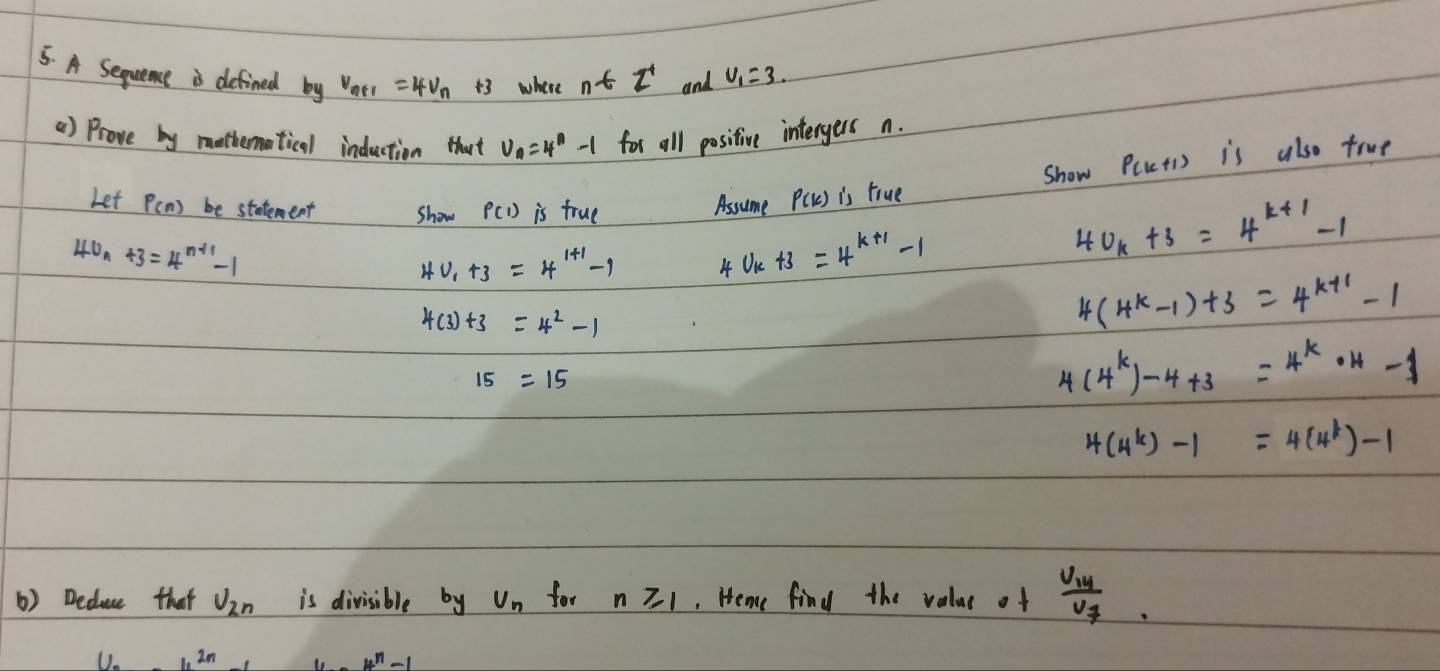 5. A Sequence is defined by Un+1 = 4Un +3 where n ∈ Z⁺ and U₁=3.
a) Prove by mathematical induction that Un=4ⁿ -1 for all positive intergers n.
Let P(n) be statement
4Un +3 = 4ⁿ⁺¹-1
Show P(1) is true
4U₁ +3 = 4¹⁺¹-1
4(3)+3 = 4² -1
15 = 15
Assume P(k) is true
4Uk +3 = 4ᵏ⁺¹ -1
Show P(k+1) is also true
4Uk +3 = 4ᵏ⁺¹ -1
4(4ᵏ-1)+3 = 4ᵏ⁺¹ -1
4(4ᵏ)-4+3 = 4ᵏ •4 -1
4(4ᵏ) -1 = 4(4ᵏ)-1
b) Deduce that U₂n is divisible by Un for n ≥1. Hence find the value of U₁₄/U₇.